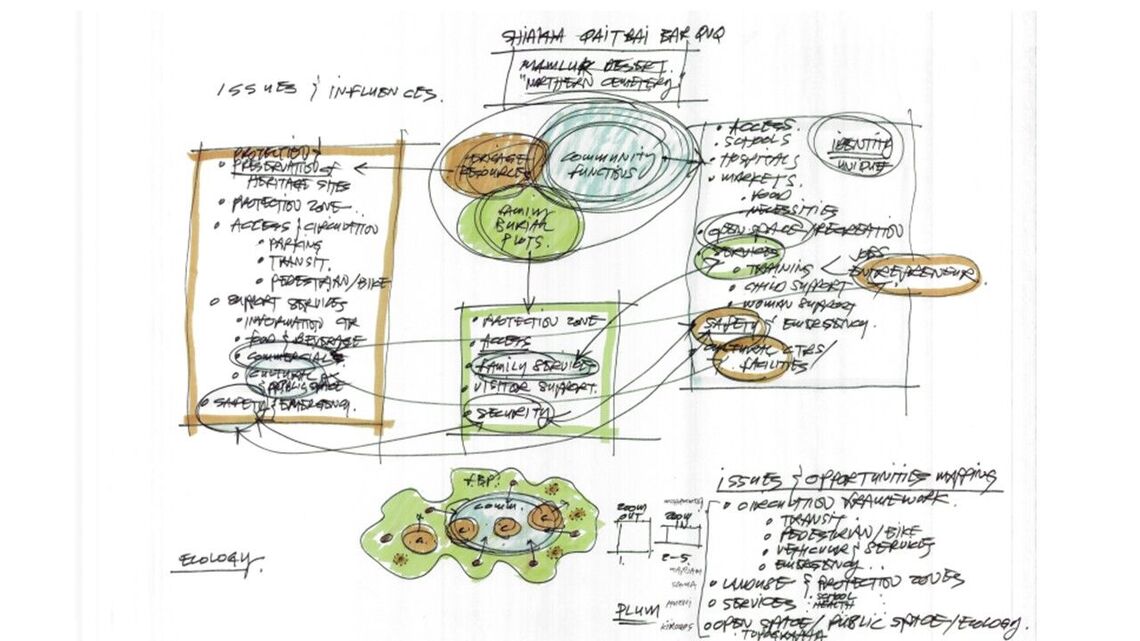 SHIAKHA QAITBAI BARQUQ
MAMLUK DESERT
"NORTHERN CEMETERY"
ISSUES & INFLUENCES.
HERITAGE
RESOURCES
COMMUNITY
FUNCTIONS
FAMILY
BURIAL
PLOTS.
PROTECTION
• PRESERVATION OF
HERITAGE SITES
• PROTECTION ZONE
• ACCESS & CIRCULATION
• PARKING
• TRANSIT.
• PEDESTRIAN/BIKE
• SUPPORT SERVICES
• INFORMATION CTR
• FOOD & BEVERAGE
• COMMERCIAL
• CULTURAL
PUBLIC SPACE
• SAFETY & EMERGENCY.
• PROTECTION ZONE
• ACCESS
• FAMILY SERVICES
• VISITOR SUPPORT.
• SECURITY
• ACCESS.
• SCHOOLS
• HOSPITALS
• MARKETS.
FOOD
NECESSITIES
• OPEN SPACE/RECREATION
• SERVICES
• TRAINING < JOBS
ENTREPRENEUR
• CHILD SUPPORT
• WOMAN SUPPORT
• SAFETY & EMERGENCY.
• CULTURAL CTRS/
FACILITIES/
IDENTITY
UNIQUE
FBP.
COMM.
ECOLOGY.
ZOOM
OUT
ZOOM
IN.
1.
2-5.
PLUM
ISSUES & OPPORTUNITIES MAPPING
• CIRCULATION FRAMEWORK.
• TRANSIT.
• PEDESTRIAN/BIKE
• VEHICULAR & SERVICES
• EMERGENCY..
• LANDUSE & PROTECTION ZONES
• SERVICES SCHOOL
HEALTH
• OPEN SPACE/PUBLIC SPACE/ECOLOGY.